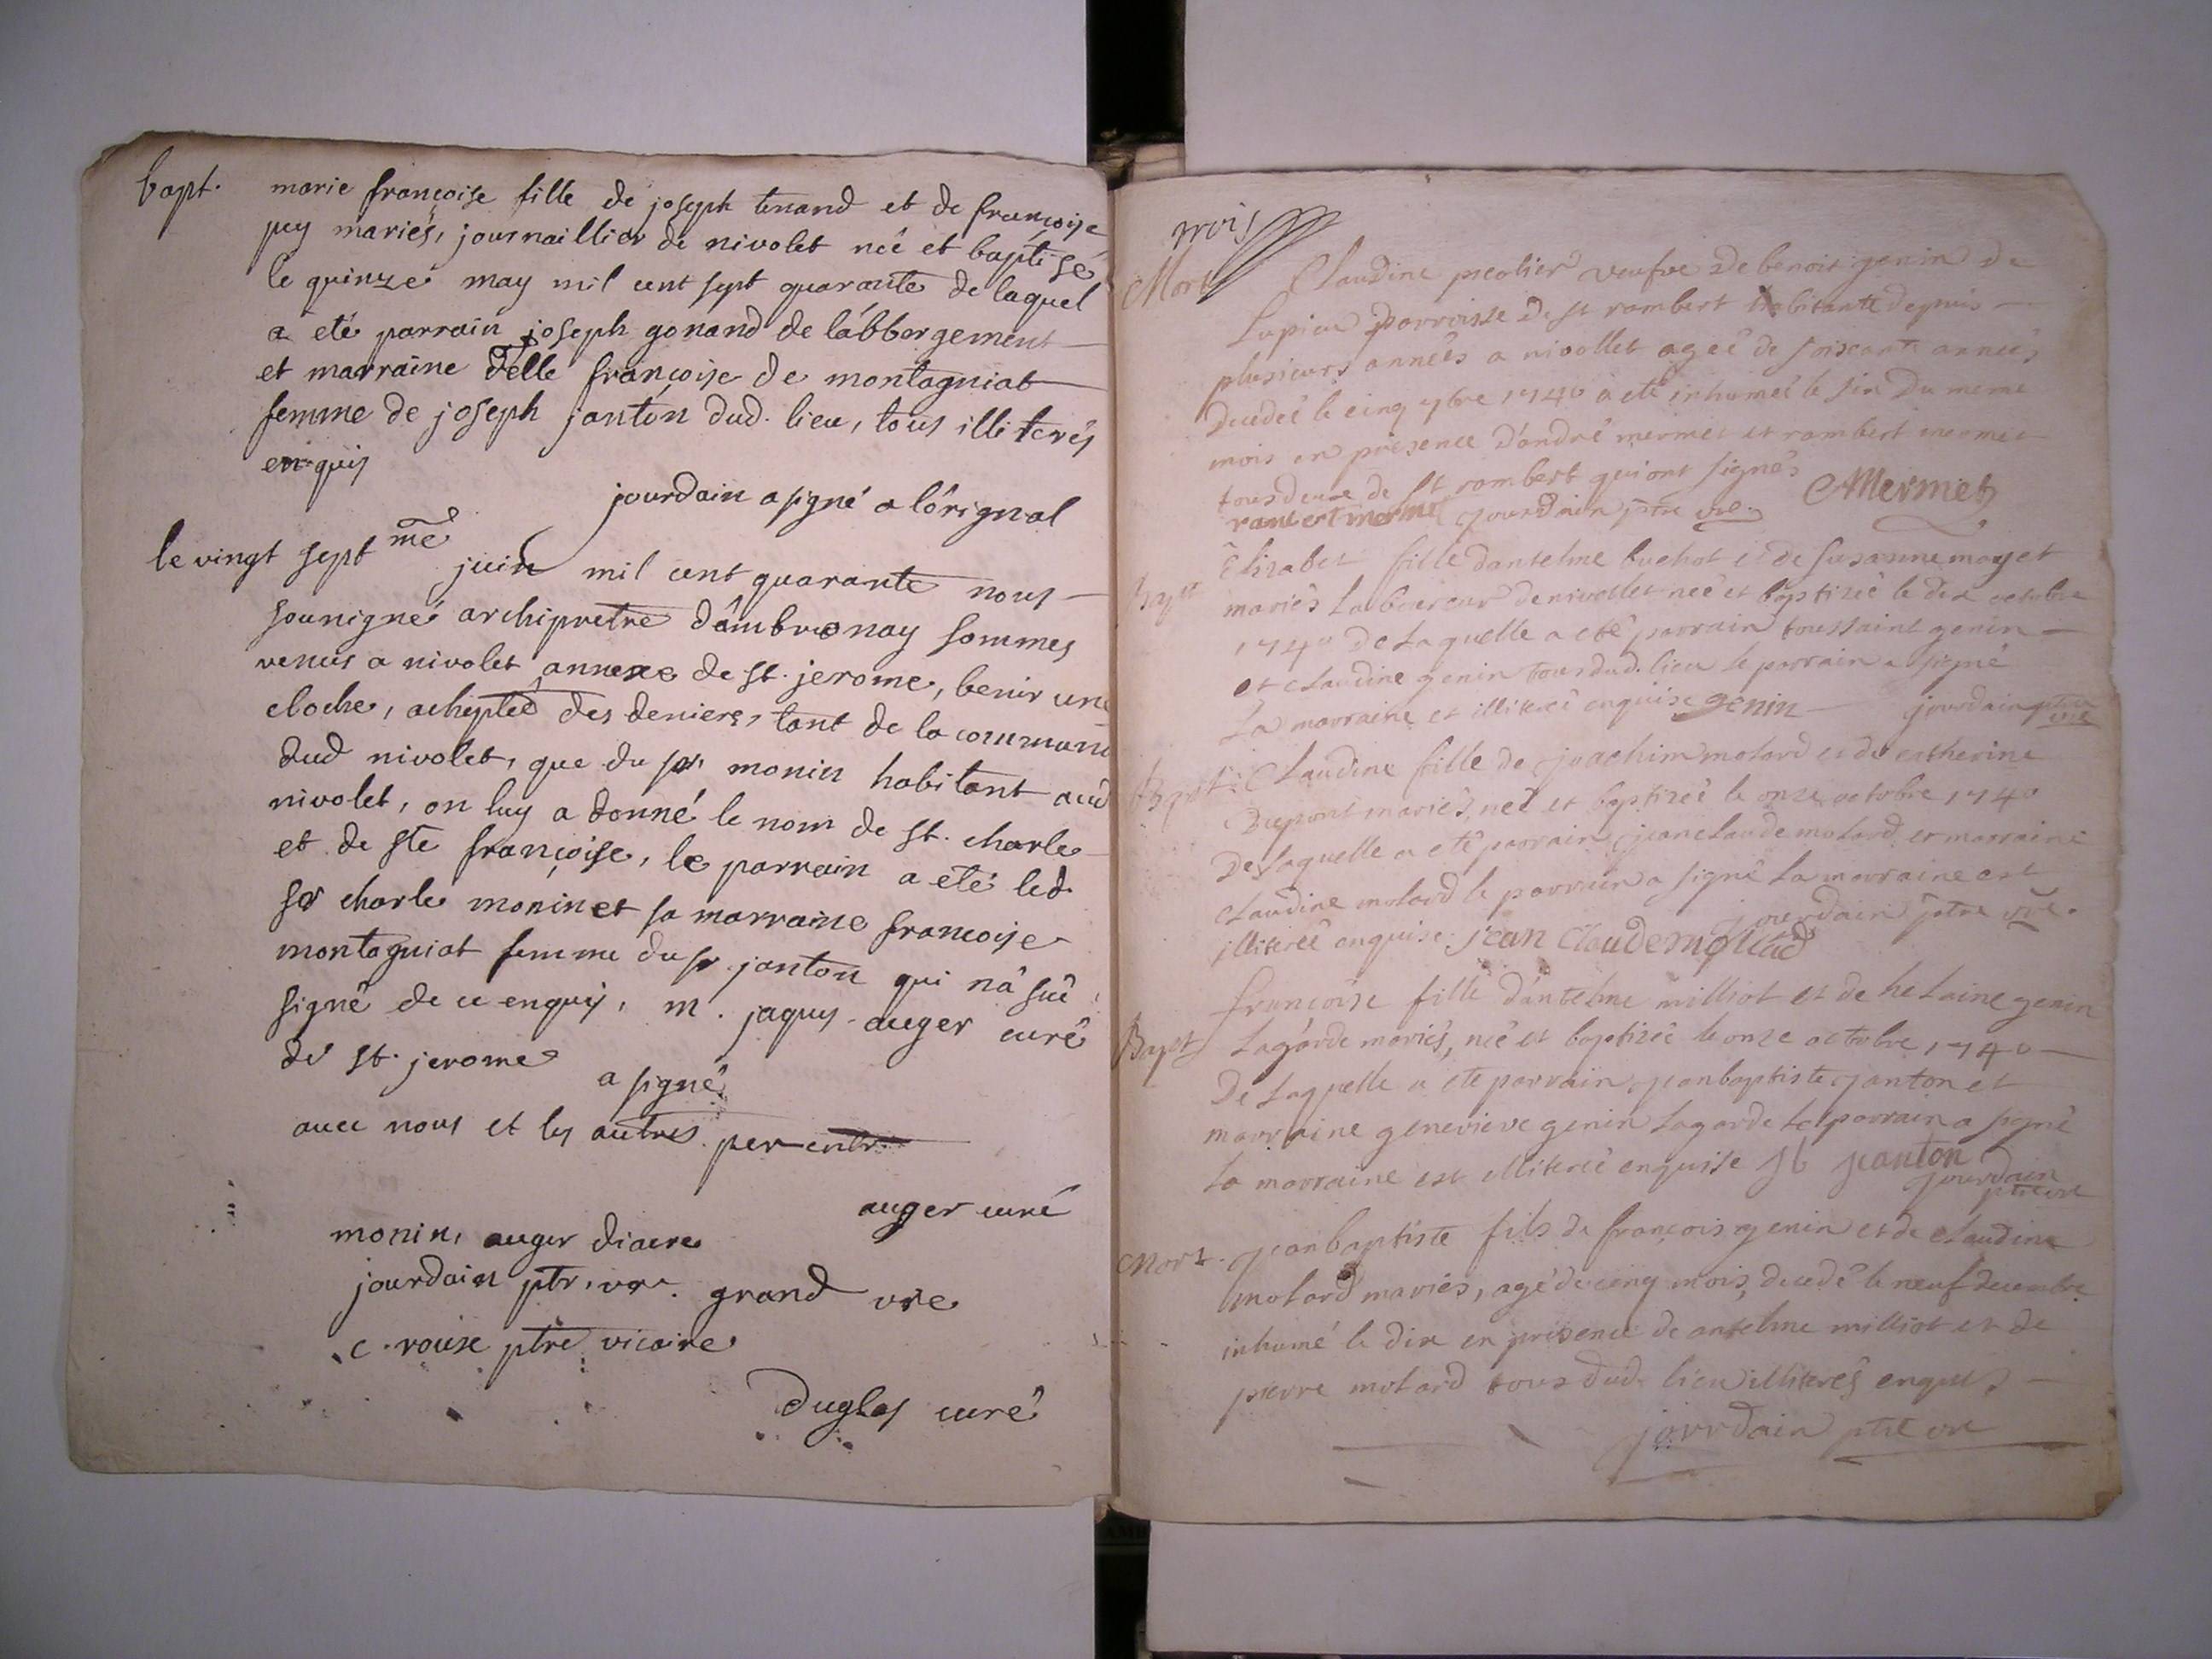 bapt. marie françoise fille de joseph tenand et de françoise
puy mariés, journaillier de nivolet neé et baptisé
le quinze may mil cent sept quarante de laquel
a eté parrain joseph gonand de l'abbergement
et marraine delle françoise de montagniat
femme de joseph janton dud. lieu, tous illiterés
enquis
jourdain a signé a lórignal
le vingt sept me juin mil cent quarante nous
sounigné archipretre d'ambronay sommes
venus a nivolet annexe de st. jerome, benir une
cloche, acheptéé des deniers, tant de la commun
dud nivolet, que du sr. monin habitant aud
nivolet, on luy a donné le nom de st. charle
et de ste françoise, le parrain a eté led.
sr charle monin et sa marraine françoise
montagniat femme du sr janton qui n'a sué
signé de ce enquis, m. jaques auger curé
de st. jerome a signé
avec nous et les autres
auger curé
monin, auger diacre
jourdain ptr. vre. grand vre
c. rouse ptre vicaire
Duglas curé
trois
Mort Claudine veufve de benoit genin de
Lupieu parroisse de st rambert habitante depuis
plusieurs annéés a nivollet ageé de soiscante années
decedeé le cinq 7bre 1740 a eté inhumeé le six du meme
mois en présence d'andré mermet et rambert mermet
tous deux de st rambert qui ont signés AMermet
rambert mermet jourdain ptre vre.
bapt Elizabet fille dantelme buchot et de susanne moyet
mariés laboureur de nivollet neé et baptizeé le dix octobre
1740 de laquelle a eté parrain toussaint genin
et claudine genin tous dud. lieu le parrain a signé
la marraine et illitereé enquise genin jourdain ptre vre
bapt. Claudine fille de joachim molard et de catherine
Dupont mariés, neé et baptizeé le onze octobre 1740
De laquelle a eté parrain jean claude molard et marraine
claudine molard le parrain a signé la marraine est
illitereé enquise. jean Claude mollad jourdain ptre vre.
françoise fille dantelme milliot et de helaine genin
Bapt Lagarde mariés, neé et baptizeé le onze octobre 1740
De laquelle a eté parrain jean baptiste janton et
marraine genevieve genin lagarde le parrain a signé
la marraine est illitereé enquise jb janton
jourdain ptre vre
Mort. jean baptiste fils de françois genin et de claudine
molard mariés, agé de cinq mois, decedé le neuf decembre
inhumé le dix en présence de antelme milliot et de
pierre molard tous dud. lieu illiterés enquis
jourdain ptre vre